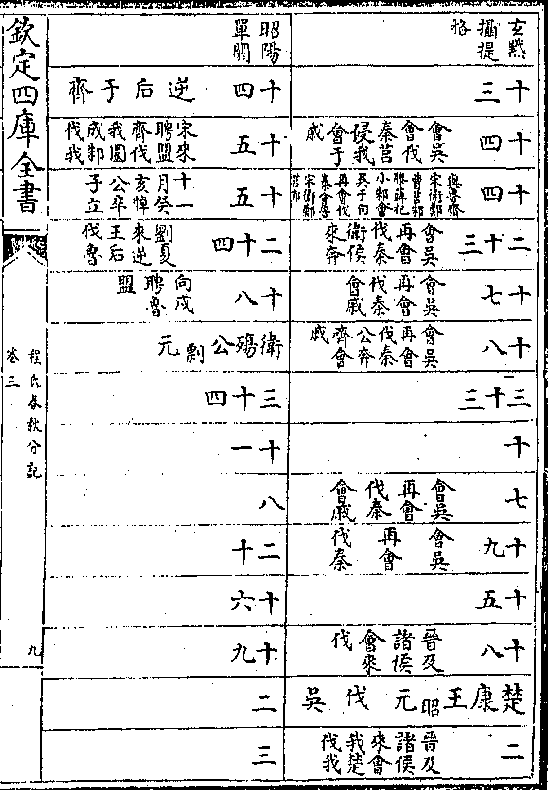 玄黓
攝提
格
十三
十四
會吳
會伐
秦莒
侵我
會于
戚
十四
宋衛鄭
曹莒邾
滕薛杞
小邾會
吳于向
再會伐
宋衛鄭
莒邾
二十三
會吳
再會
伐秦
衛侯
來奔
十七
會吳
再會
伐秦
會戚
十八
會吳
再會
伐秦
公奔
齊會
戚
三十三
十
七
會吳
再會
伐秦
會戚
十九
會吳
再會
伐秦
十五
十八
晉及
諸侯
會來
伐
楚康王昭元伐吳
二
晉及
諸侯
來會
我楚
伐我
昭陽
單閼
十四逆后于齊
十五
宋來
聘盟
齊伐
我圍
成邾
伐我
十五
十一
月癸
亥悼
公卒
子立
二十四
劉夏
來逆
王后
伐魯
十八
向戌
聘魯
盟
衛殤公剽元
三十四
十一
八
二十
十六
十九
二
三
欽定四庫全書
程氏春秋分記
卷三
九